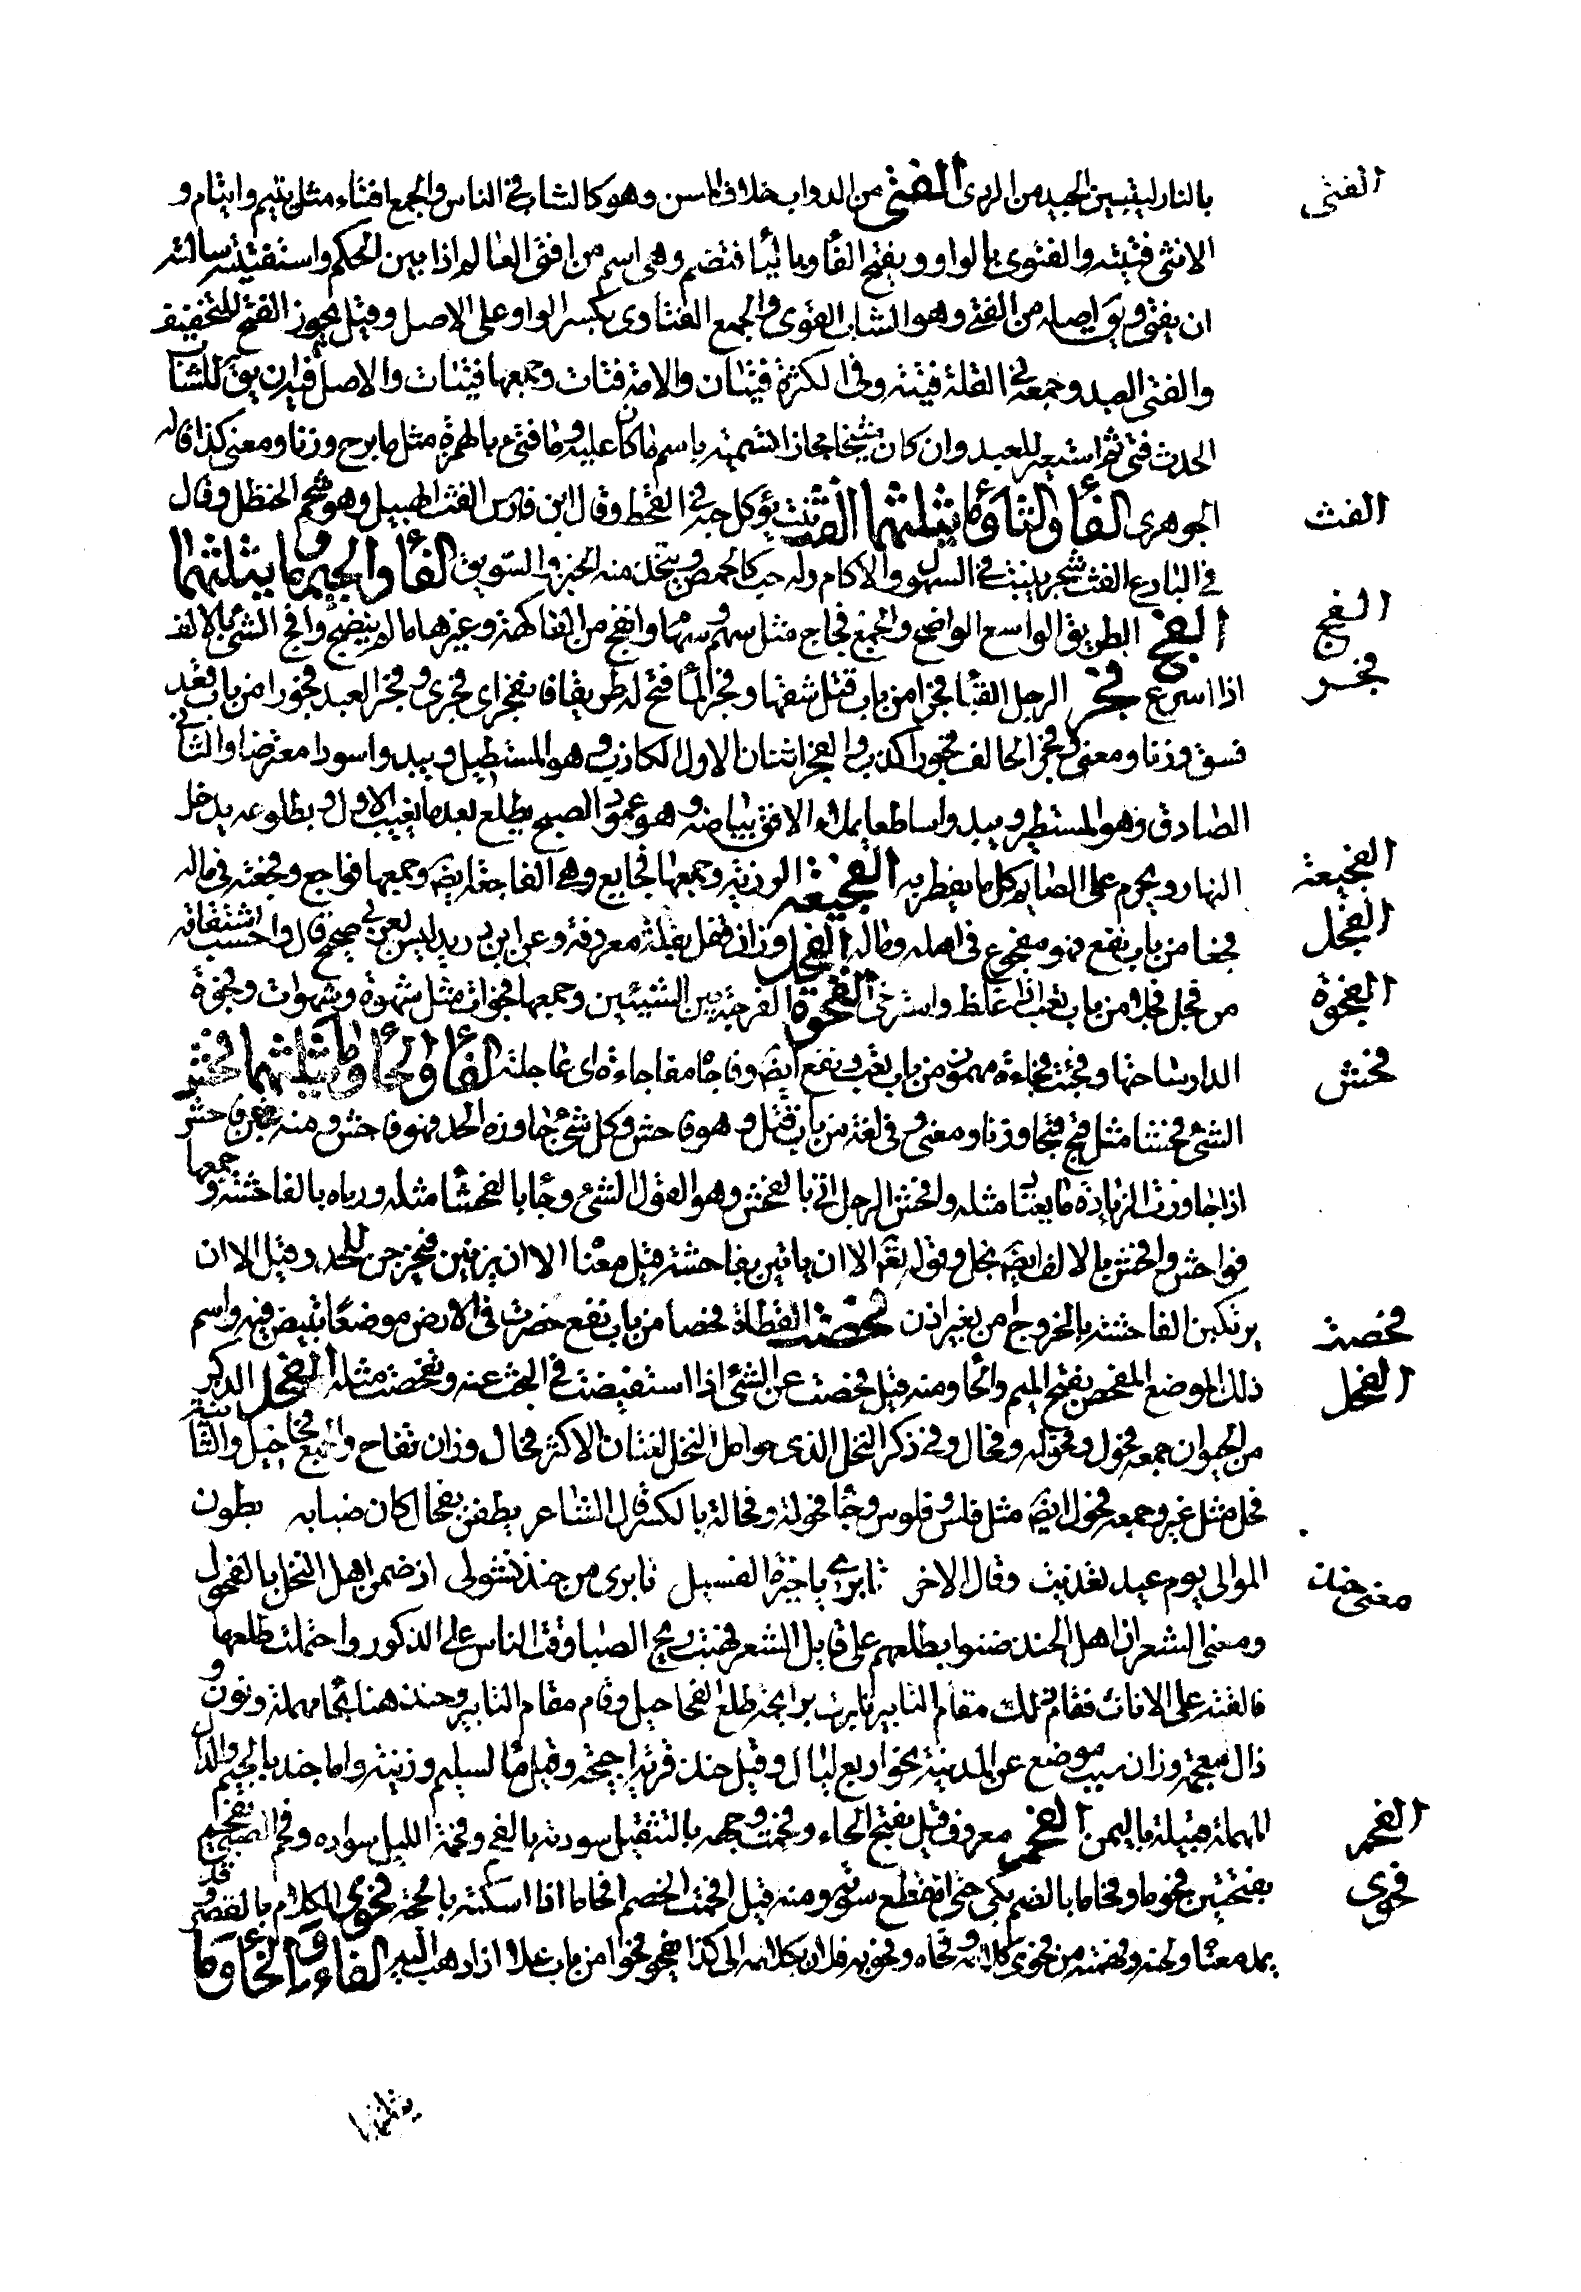 الفتى
بالنار ليتبين الجيد من الردى الفتى من الدواب خلاف المسن وهو كالشاب في الناس والجمع افتاء مثل يتيم وايتام و
الانثى فتيته والفتوى بالواو وبفتح الفا وباليا فتضم وهى اسم من افتى العالم اذا بين الحكم واستفتيته سالته
ان يفتى ويق اصله من الفتى وهو الشاب القوى والجمع الفتاوى بكسر الواو على الاصل وقيل يجوز الفتح للتخفيف
والفتى العبد وجمعه في القلة فتية وفى الكثرة فتيان والامة فتات وجمعها فتيات والاصل فيه ان يق للشاب
الحدث فتى ثم استعير للعبد وان كان شيخا مجازا تسمية باسم ما كان عليه وما فتئ بالهمزة مثل ما برح وزنا ومعنى كذا قاله
الفث
الجوهرى الفا والثا وما يثلثهما الفث نبت يؤكل حبه في القحط وقال ابن فارس الفث الهبيد وهو شحم الحنظل وقال
في البارع الفث شجر ينبت في السهول والاكام وله حب كالحمص ويتخذ منه الخبز والسويق الفا والجيم وما يثلثهما
الفج
الفج الطريق الواسع الواضح والجمع فجاج مثل سهم وسهام والفج من الفاكهة وغيرها ما لم ينضج وافج الشئ بالالف
فجر
اذا اسرع فجر الرجل القنا فجرا من باب قتل شقها وفجر الما فتح له طريقا فانفجر اى فجرى وفجر العبد فجورا من باب قعد
فسق وزنا ومعنى وفجر الحالف فجورا كذب والفجر اثنان الاول الكاذب وهو المستطيل ويبدو اسود معترضا والثانى
الصادق وهو المستطير ويبدو اساطعا يملاء الافق ببياضه وهو عمود الصبح يطلع بعد ما يغيب الاول وبطلوعه يدخل
الفجيعة
النهار ويحرم على الصايم كل ما يفطر به الفجيعة الرزية وجمعها فجايع وهى الفاجعة ايضا وجمعها فواجع وفجعته فى ماله
الفجل
فجعا من باب نفع فهو مفجوع فى اهله وماله الفجل وزان قفل بقلة معروفة وعن ابن دريد ليس بعربى صحيح قال واحسب اشتقاقه
الفجوة
من فجل فجلا من باب تعب اذا غلظ واسترخى الفجوة الفرجة بين الشيئين وجمعها فجوات مثل شهوة وشهوات وفجوة
فحش
الدار ساحتها وفجئت فجاءة مهموز من باب تعب ونفع ايضا وفاجاه مفاجاءة اى عاجلة الفا والحا وما يثلثهما فحش
الشئ فحشا مثل قبح قبحا وزنا ومعنى وفى لغة من باب قتل وهو فاحش وكل شئ جاوز الحد فهو فاحش ومنه غبن فاحش
اذا جاوزت الزيادة ما يعتاد مثله وافحش الرجل اتى بالفحش وهو القول السئ وجا بالفحشا مثله ورماه بالفاحشة وجمعها
فواحش وافحش بالالف ايضا بخل وقوله تعم الا ان ياتين بفاحشة قيل معناه الا ان يزنين فيخرجن للحد وقيل الا ان
فحصت
يرتكبن الفاحشة بالخروج من بغير اذن فحصت القطاة فحصا من باب نفع حفرت فى الارض موضعا تبيض فيه واسم
الفحل
ذلك الموضع المفحص بفتح الميم والحا ومنه قيل فحصت عن الشئ اذا استقصيت في البحث عنه وتفحصت مثله الفحل الذكر
من الحيوان جمعه فحول وفحولة وفحال وفى ذكر النخل الذى حوامل النخل لغتان الاكثر فحال وزان تفاح والجمع فحاحيل والثانية
فحل مثل غيره وجمعه فحول ايضا مثل فلس وفلوس وجا فحولة وفحالة بالكسر قال الشاعر يطفن بفحال كان ضبابه بطون
معنى حنذ
الموالى يوم عيد تغديت وقال الاخر تابرى ياخيرة الفسيل تابرى من حنذ فشولى اذ ضمن اهل النخل بالفحول
ومعنى الشعر ان اهل الحنذ ضنوا بطلعهم على قايل الشعر فهبت ريح الصبا وقت الناس على الذكور واحتملت طلعها
فالقته على الاناث فقام ذلك مقام التابير تابرت برايحة طلع الفحاحيل وقام مقام التابير وحنذ هنا بحا مهملة ونون و
ذال معجمة وزان سبب موضع عن المدينة نحو اربع ليال وقيل حنذ قرية احيحة وقيل ما لسليم ومزينة واما جند بالجيم والدال
الفحم
المهملة قبيلة باليمن الفحم معروف قيل بفتح الحاء وفحمت وجهه بالتثقيل سودته بالفحم وفحمة الليل سواده وفحم الصبى يفحم
فحوى
بفتحتين فحوما وفحاما بالضم بكى حتى انقطع صوته ومنه قيل افحمت الخصم افحاما اذا اسكته بالحجة فحوى الكلام بالقصر وقد
يمد معناه ولحنه وفهمته من فحوى كلامه وفحاه وفحوبه فلان بكلامه الى كذا يفحو فحوا من باب علا اذا ذهب اليه الفاء والخا وما
يثلثهما